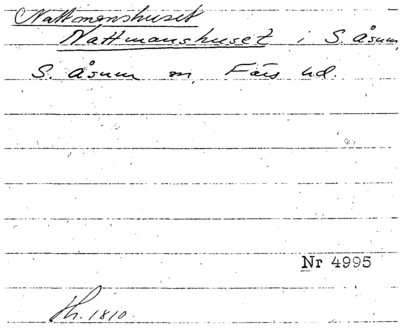 Nattmanshuset
Nattmanshuset i S. Åsum,
S. Åsum sn, Färs hd.
Nr 4995
Hh. 1810.